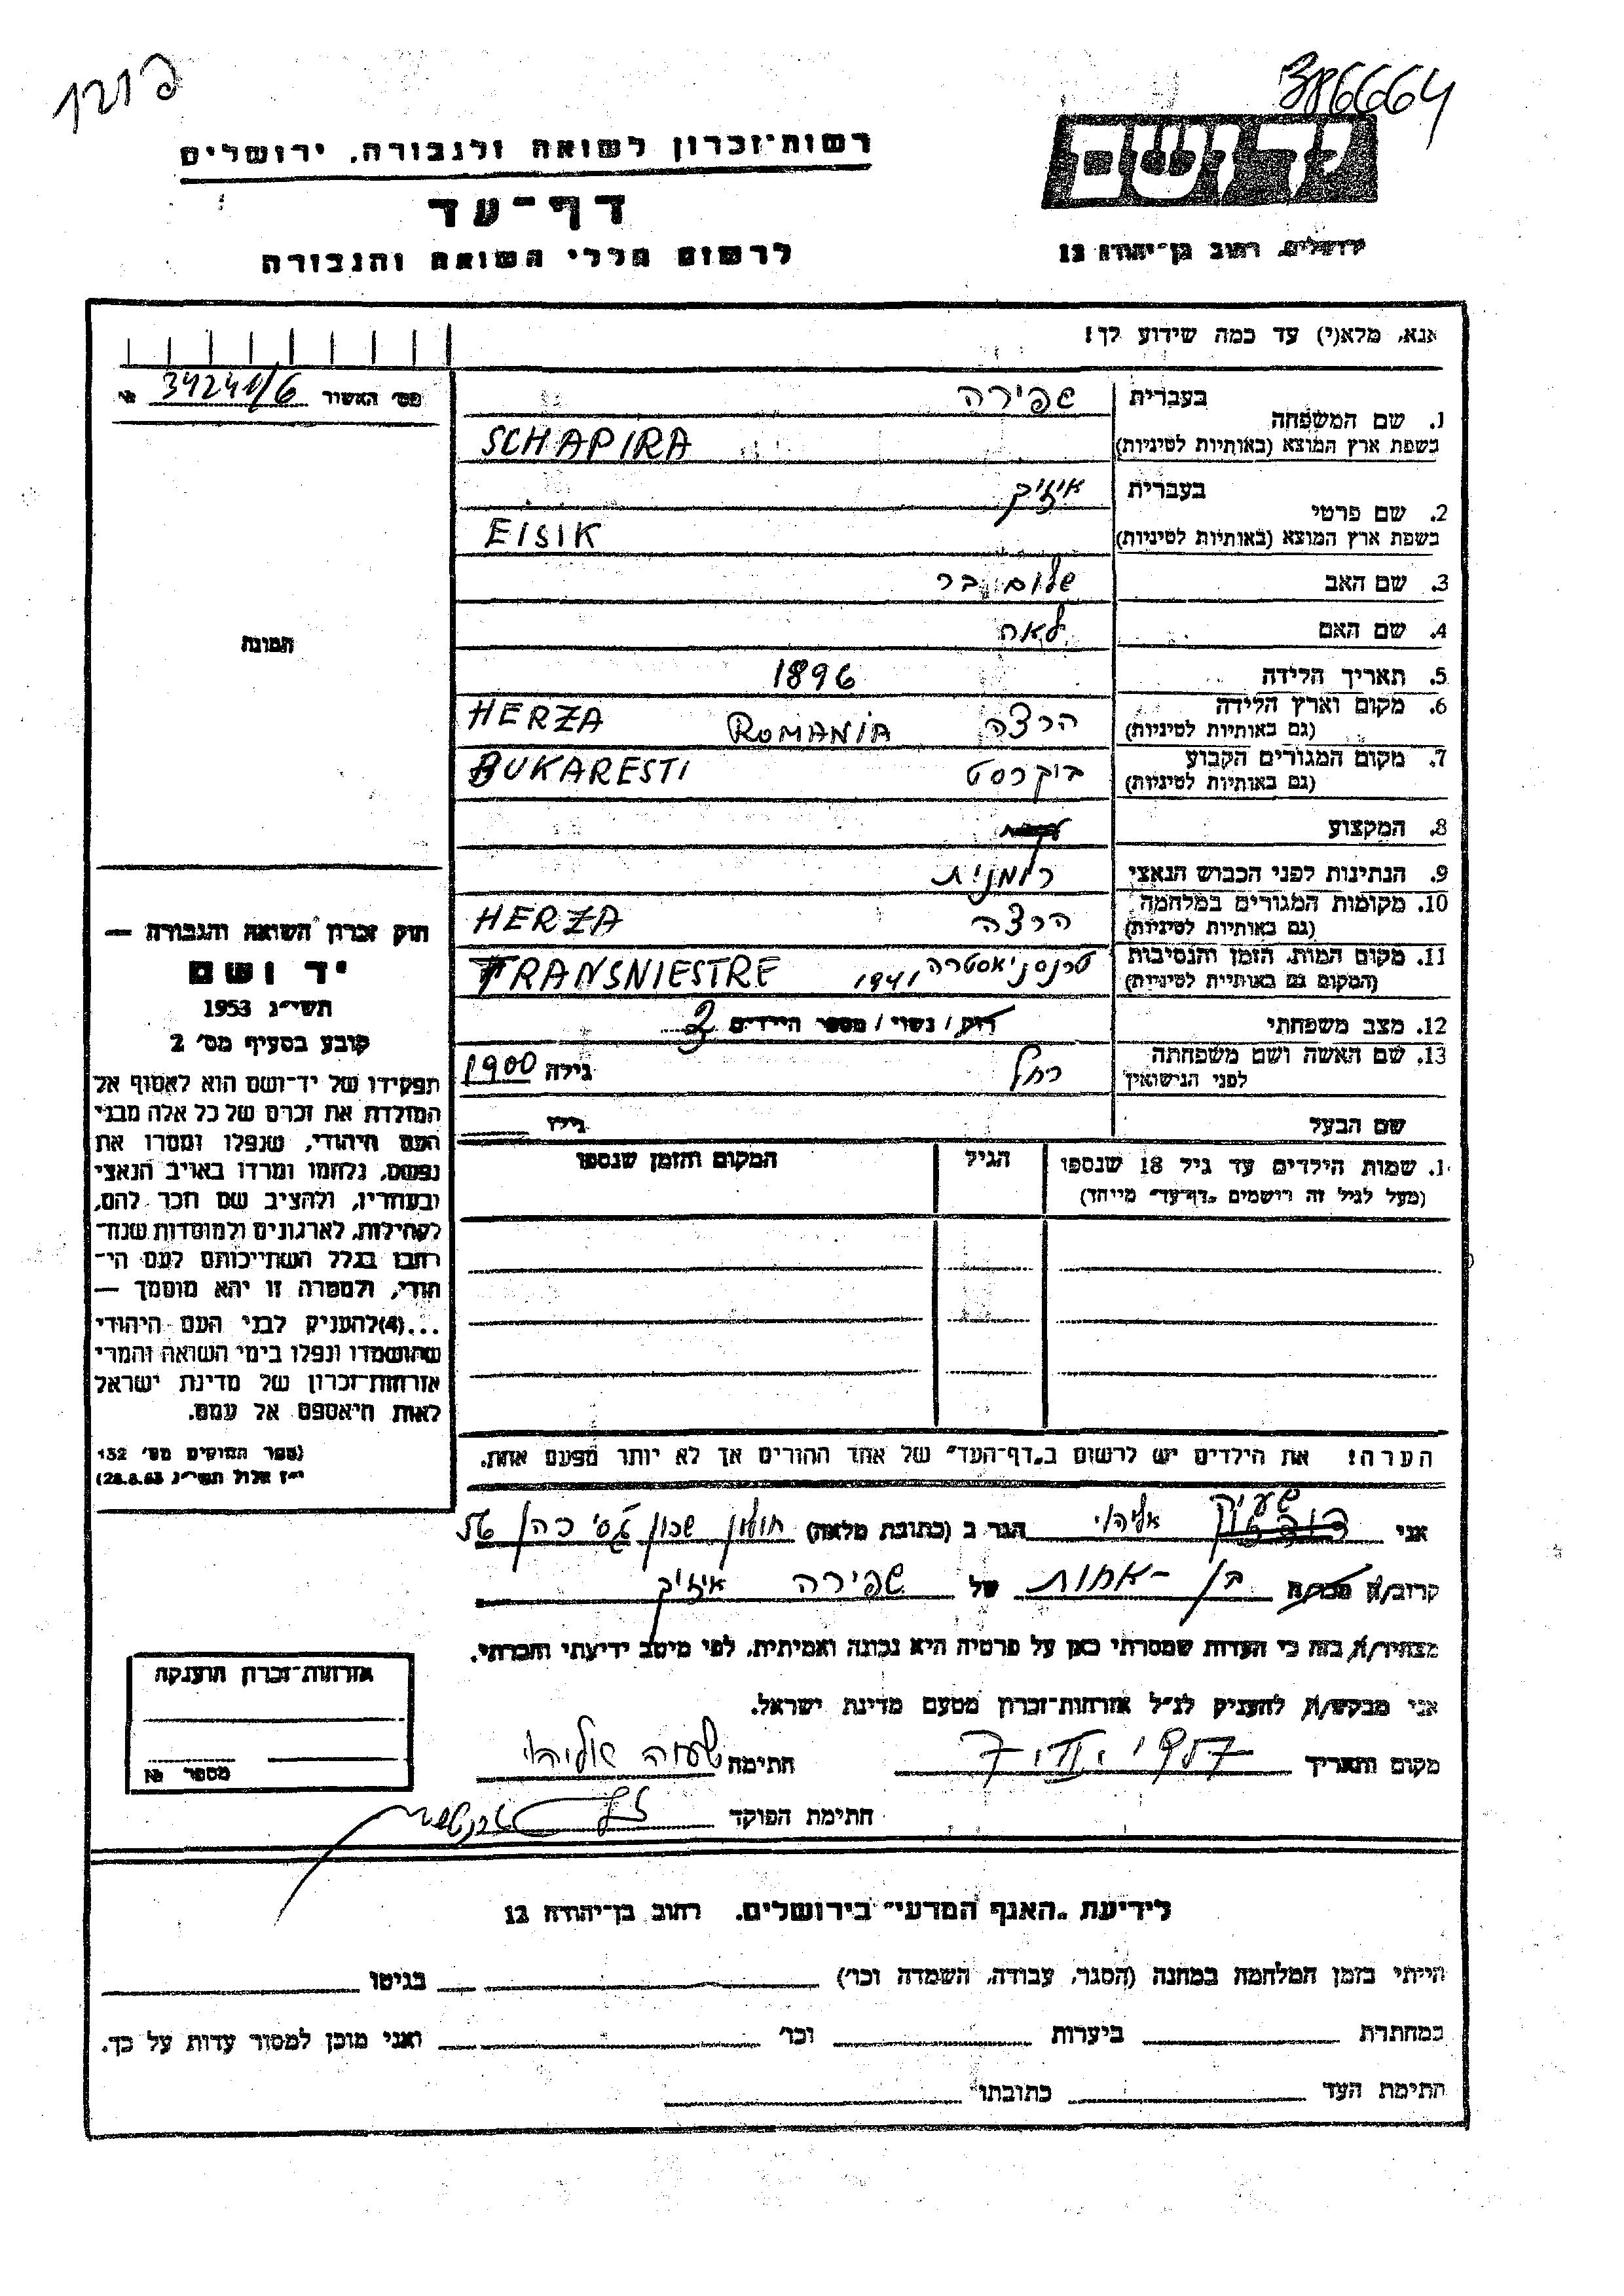 386664
רשות-זכרון לשואה ולגבורה, ירושלים
דף-עד
לרשום חללי השואה והגבורה
יד ושם
ירושלים, רחוב בן-יהודה 12
אנא, מלא(י) עד כמה שידוע לך!
מס׳ האשור 34240/6 №
1. שם המשפחה
בעברית שפירה
בשפת ארץ המוצא (באותיות לטיניות) SCHAPIRA
2. שם פרטי
בעברית איזיק
בשפת ארץ המוצא (באותיות לטיניות) EISIK
3. שם האב שלום בר
4. שם האם לאה
5. תאריך הלידה 1896
6. מקום וארץ הלידה (גם באותיות לטיניות) הרצה ROMANIA HERZA
7. מקום המגורים הקבוע (גם באותיות לטיניות) בוקרסט BUKARESTI
8. המקצוע
9. הנתינות לפני הכבוש הנאצי רומנית
10. מקומות המגורים במלחמה (גם באותיות לטיניות) הרצה HERZA
11. מקום המות, הזמן והנסיבות (המקום גם באותיית לטיניות) טרנסניאסטרה 1941 TRANSNIESTRE
12. מצב משפחתי רוק / נשוי / מספר הילדים 2
13. שם האשה ושם משפחתה לפני הנישואין רחל גילה 1900
שם הבעל גילו
1. שמות הילדים עד גיל 18 שנספו
(מעל לגיל זה רושמים „דף-עד״ מייחד)
הגיל
המקום והזמן שנספו
הערה! את הילדים יש לרשום ב„דף-העד״ של אחד ההורים אך לא יותר מפעם אחת.
התמונה
חוק זכרון השואה והגבורה —
יד ושם
תשי״ג 1953
קובע בסעיף מס׳ 2
תפקידו של יד-ושם הוא לאסוף אל
המולדת את זכרם של כל אלה מבני
העם היהודי, שנפלו ומסרו את
נפשם, נלחמו ומרדו באויב הנאצי
ובעוזריו, ולהציב שם וזכר להם,
לקהילות, לארגונים ולמוסדות שנח־
רבו בגלל השתייכותם לעם הי־
הודי, ולמטרה זו יהא מוסמך —
...(4)להעניק לבני העם היהודי
שהושמדו ונפלו בימי השואה והמרי
אזרחות-זכרון של מדינת ישראל
לאות היאספם אל עמם.
(ספר החוקים מס׳ 132
י״ז אלול תשי״ג 28.8.53)
אני אליהו הגר ב (כתובת מלאה) חולון שכון גסי כהן 56
קרוב/ה מכר/ה בן-אחות של שפירה איזיק
מצהיר/ה בזה כי העדות שמסרתי כאן על פרטיה היא נכונה ואמיתית, לפי מיטב ידיעתי והכרתי.
אני מבקש/ת להעניק לנ״ל אזרחות-זכרון מטעם מדינת ישראל.
מקום ותאריך חתימה אליהו
חתימת הפוקד
אזרחות-זכרון הוענקה
מספר №
לידיעת „האגף המדעי״ בירושלים, רחוב בן-יהודה 12
הייתי בזמן המלחמה במחנה (הסגר, עבודה, השמדה וכו׳) בגיטו
במחתרת ביערות וכו׳ ואני מוכן למסור עדות על כך.
חתימת העד כתובתו